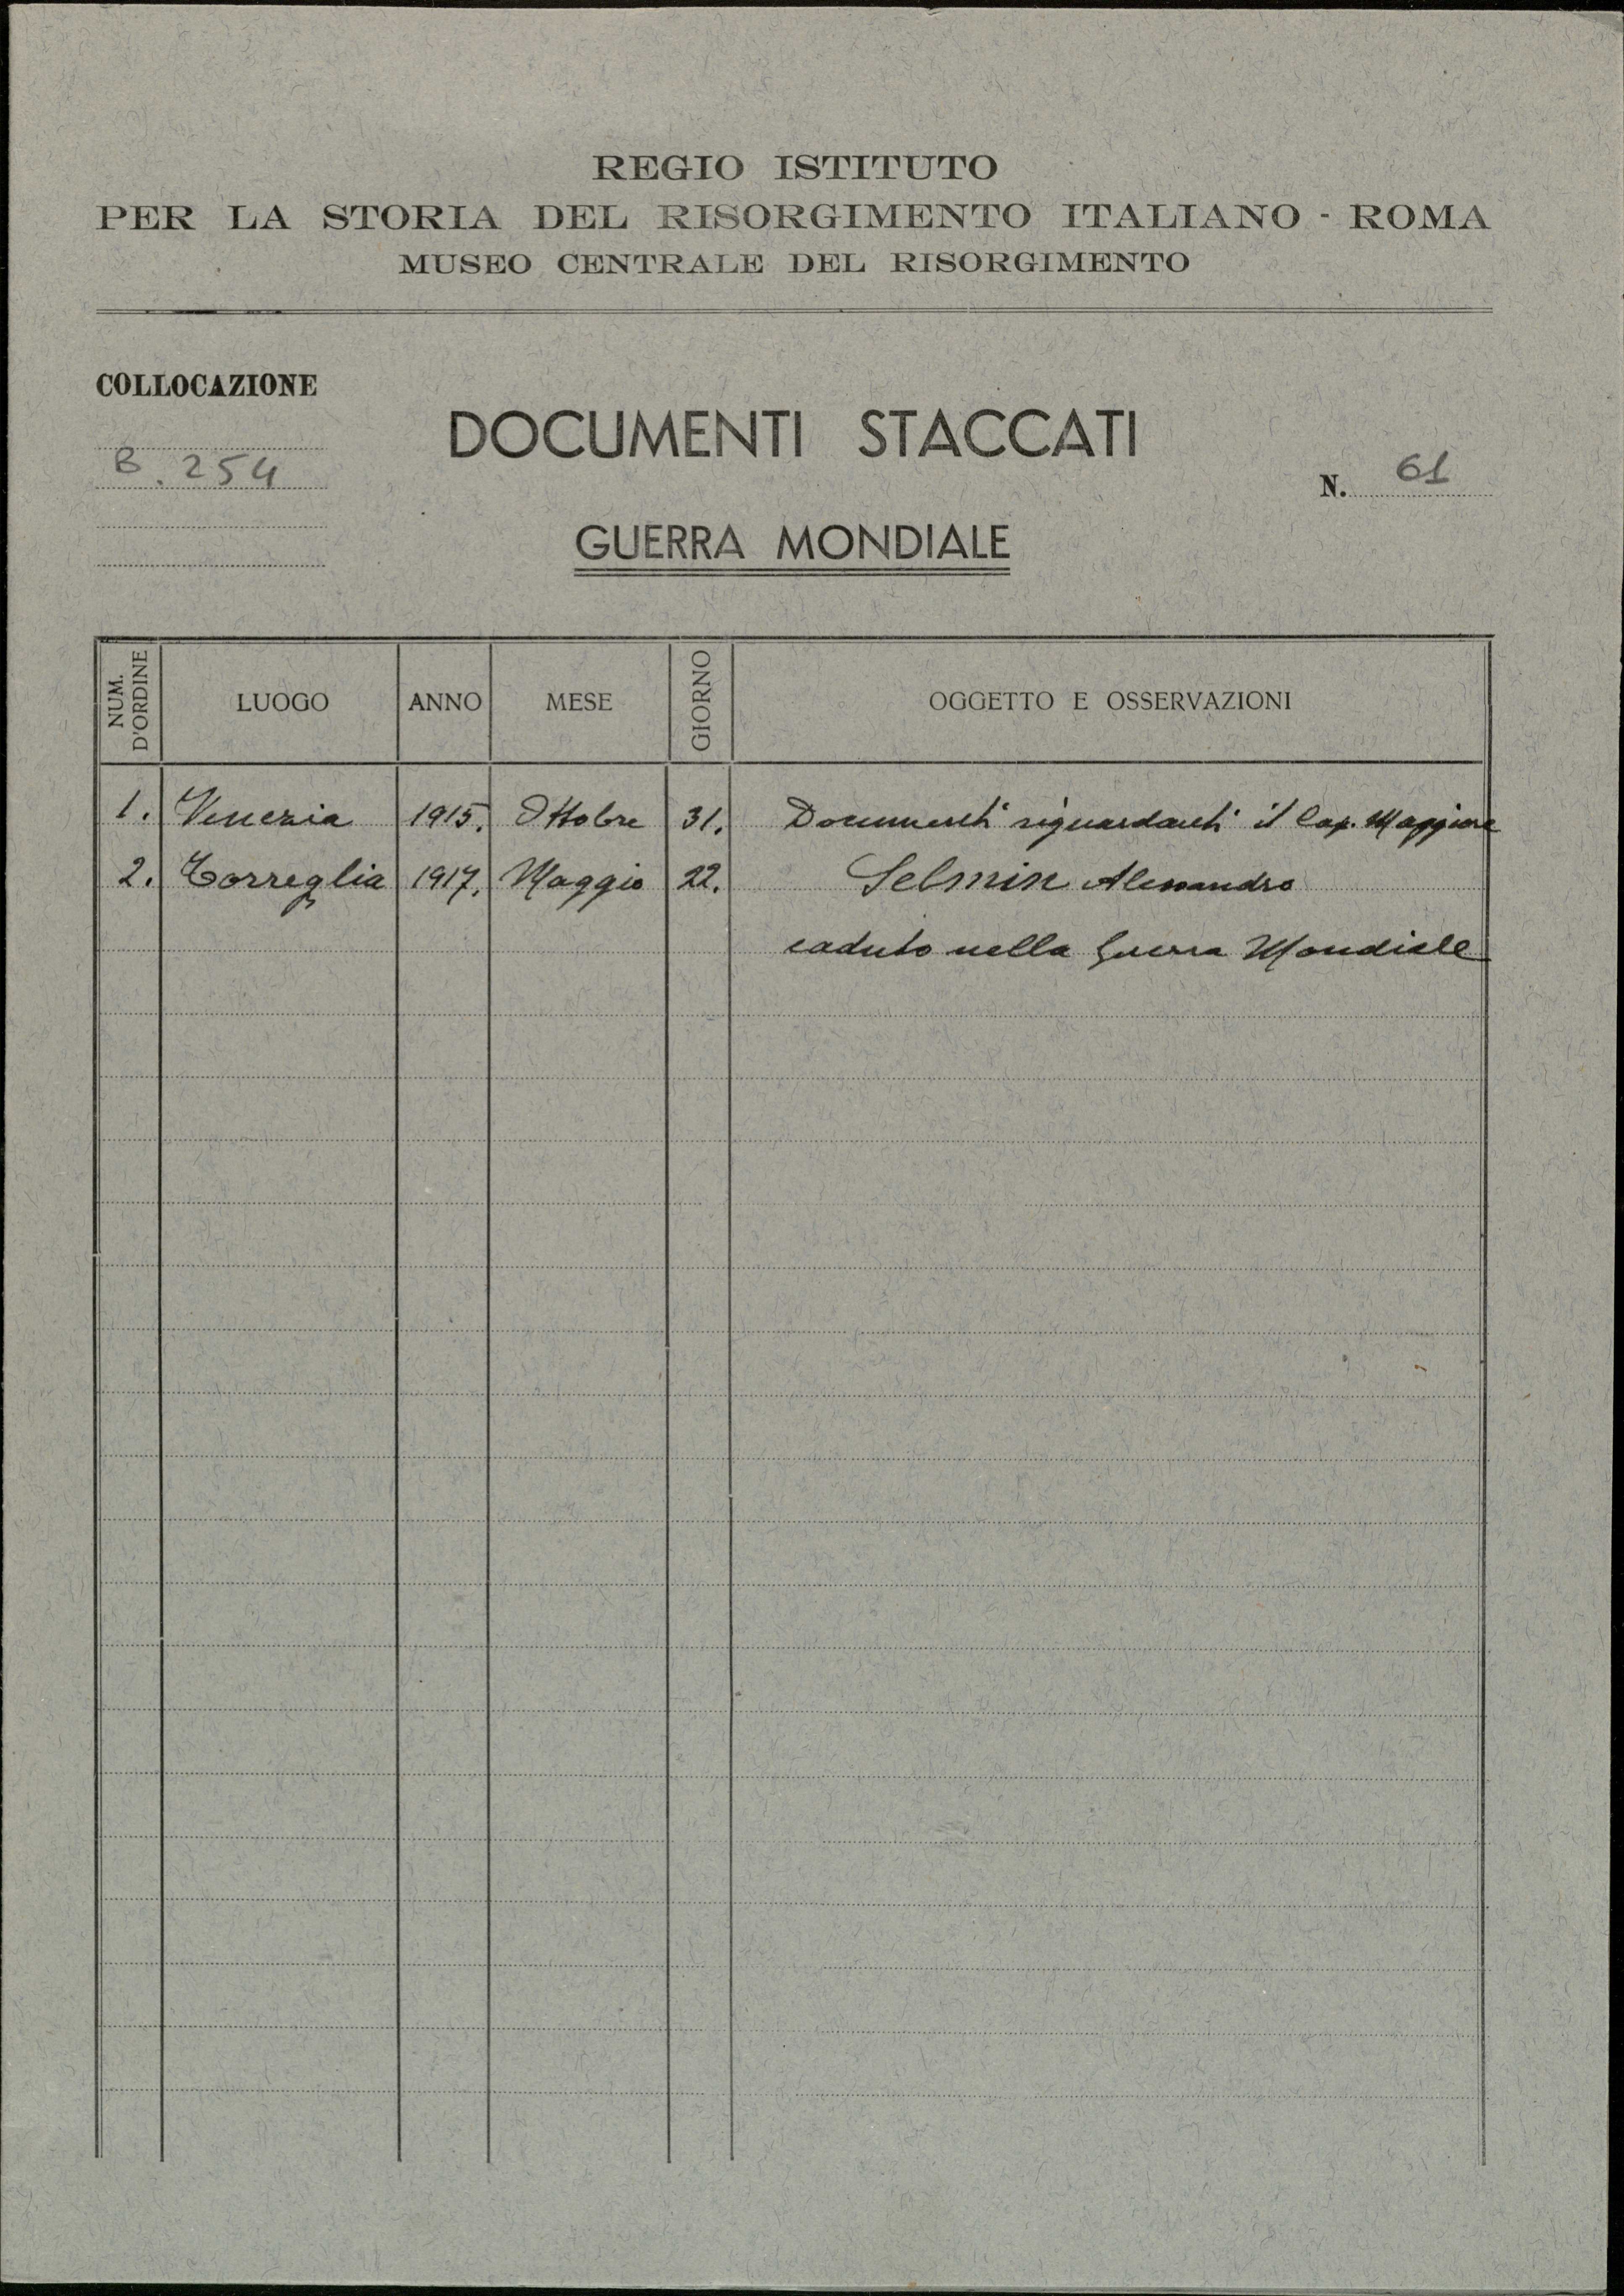 REGIO ISTITUTO
PER LA STORIA DEL RISORGIMENTO ITALIANO - ROMA
MUSEO CENTRALE DEL RISORGIMENTO
COLLOCAZIONE
B. 254
DOCUMENTI STACCATI
N. 61
GUERRA MONDIALE
NUM. D'ORDINE LUOGO ANNO MESE GIORNO OGGETTO E OSSERVAZIONI
1. Venezia 1915. Ottobre 31. Documenti riguardanti il Cap. Maggiore
2. Torreglia 1917. Maggio 22. Selmin Alessandro
caduto nella Guerra Mondiale